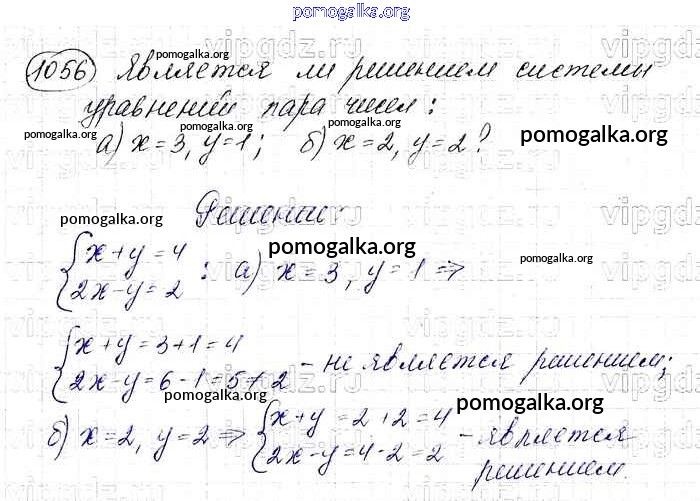 pomogalka.org
1056 pomogalka.org Является ли решением системы
уравнений пара чисел:
pomogalka.org pomogalka.org pomogalka.org pomogalka.org
а) x=3, y=1; б) x=2, y=2?
Решение
pomogalka.org pomogalka.org pomogalka.org pomogalka.org
{x+y=4
{2x-y=2 : а) x=3, y=1 ⇒
{x+y=3+1=4
{2x-y=6-1=5≠2 - не является решением;
pomogalka.org pomogalka.org
б) x=2, y=2 ⇒ {x+y=2+2=4
{2x-y=4-2=2 - является
решением.
pomogalka.org pomogalka.org
vipgdz.ru